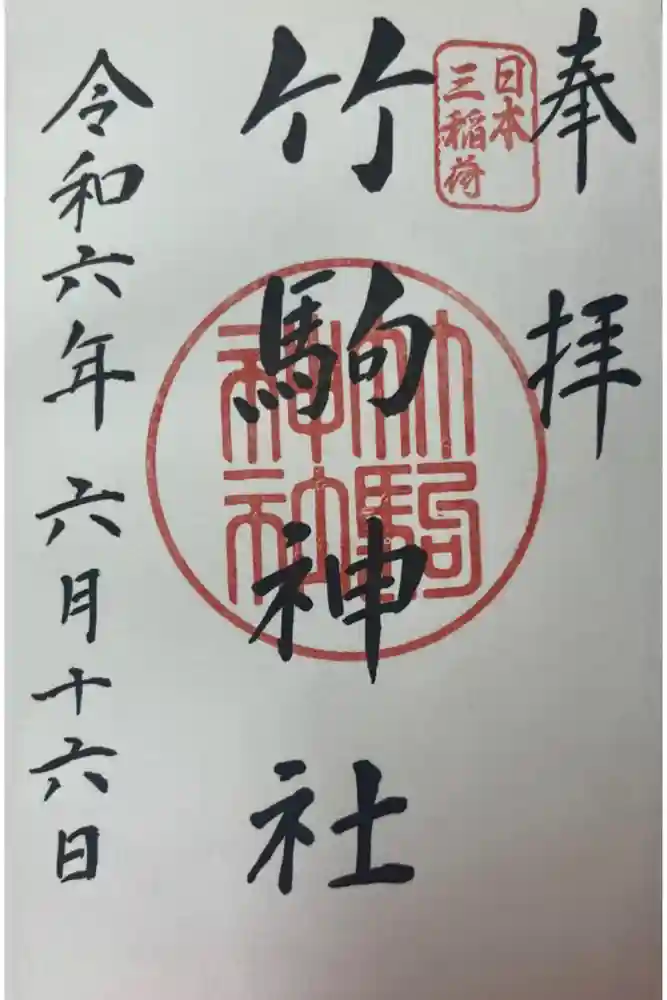 奉拝
日本
三稲荷
竹駒神社
竹駒
神社
令和六年六月十六日